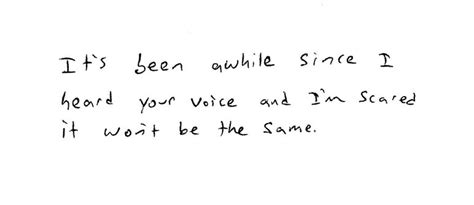 It's been awhile since I
heard your voice and I'm scared
it won't be the same.